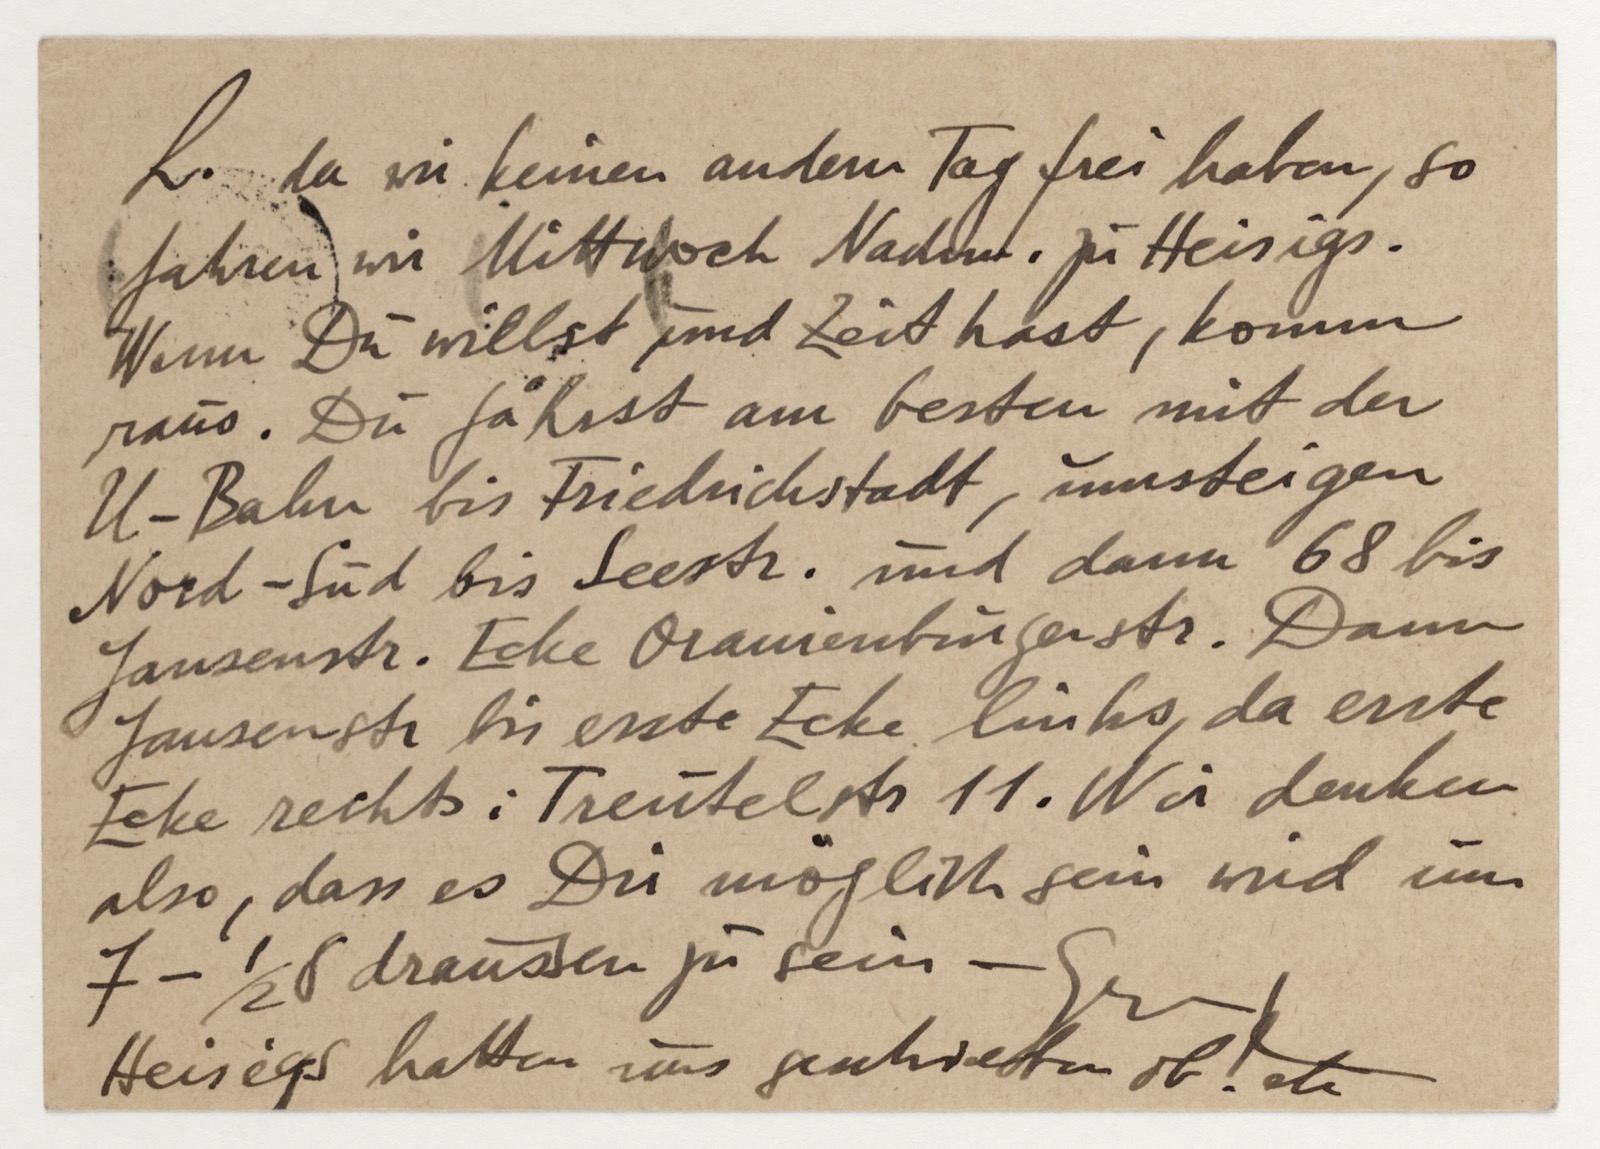 L. da wir keinen andern Tag frei haben, so
fahren wir Mittwoch Nachm. zu Heisigs.
Wenn Du willst und Zeit hast, komm
raus. Du fährst am besten mit der
U-Bahn bis Friedrichstadt, umsteigen
Nord-Süd bis Seestr. und dann 68 bis
Jansenstr. Ecke Oranienburgerstr. Dann
Jansenstr bis erste Ecke links, da erste
Ecke rechts: Treutelstr 11. Wir denken
also, dass es Dir möglich sein wird um
7 - 1/2 8 draussen zu sein —
Heisigs hatten uns geschrieben ob! etc